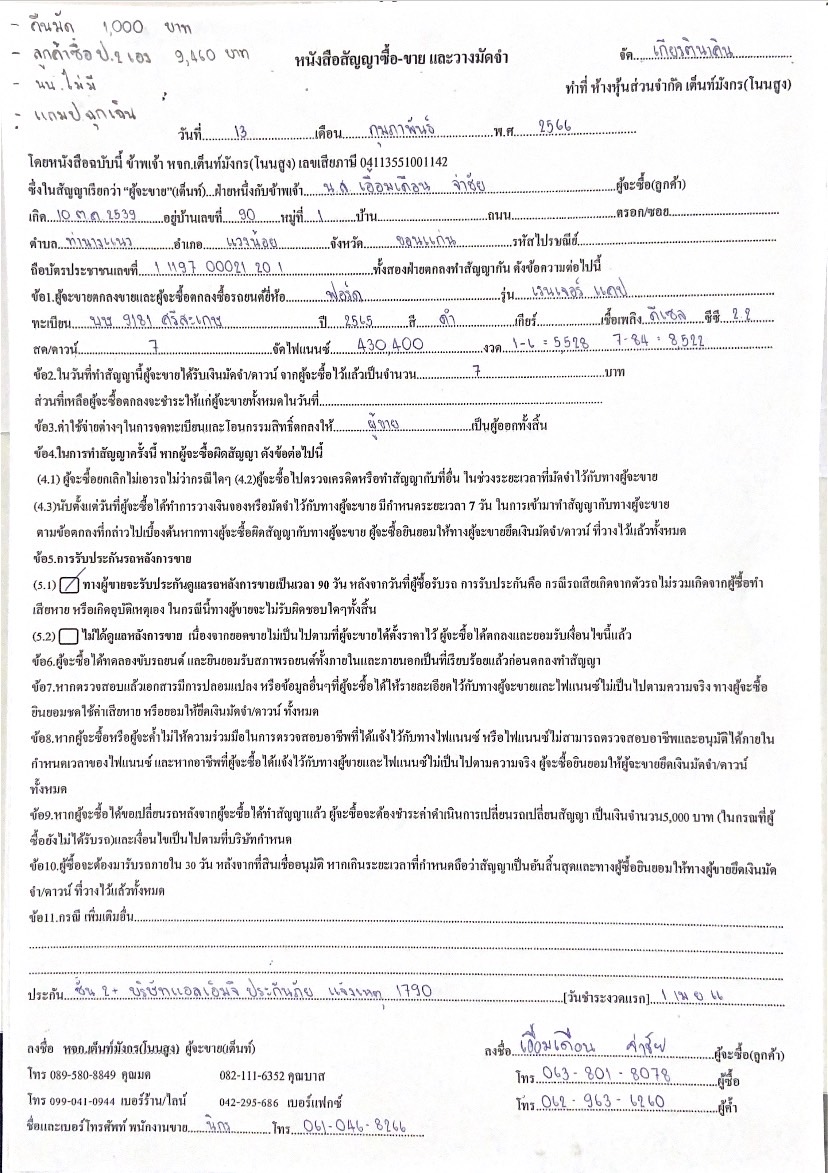 - คืนมัด 1,000 บาท
- ลูกค้าซื้อ ป.2 เอง 9,460 บาท
- นน. ไม่มี
- แถมปฉุกเฉิน
หนังสือสัญญาซื้อ-ขาย และวางมัดจำ
จัด...เกียรตินาคิน
ทำที่ ห้างหุ้นส่วนจำกัด เต็นท์มังกร(โนนสูง)
วันที่ 13 เดือน กุมภาพันธ์ พ.ศ 2566
โดยหนังสือฉบับนี้ ข้าพเจ้า หจก.เต็นท์มังกร(โนนสูง) เลขเสียภาษี 04113551001142
ซึ่งในสัญญาเรียกว่า "ผู้จะขาย"(เต็นท์)..ฝ่ายหนึ่งกับข้าพเจ้า น.ส. เอื้อมเดือน จ่าชัย ผู้จะซื้อ(ลูกค้า)
เกิด 10 ต.ค. 2539 อยู่บ้านเลขที่ 90 หมู่ที่ 1 บ้าน ถนน ตรอก/ซอย
ตำบล ท่านางแนว อำเภอ แวงน้อย จังหวัด ขอนแก่น รหัสไปรษณีย์
ถือบัตรประชาชนเลขที่ 1 1197 00021 20 1 ทั้งสองฝ่ายตกลงทำสัญญากัน ดังข้อความต่อไปนี้
ข้อ1.ผู้จะขายตกลงขายและผู้จะซื้อตกลงซื้อรถยนต์ยี่ห้อ ฟอร์ด รุ่น เรนเจอร์ แคป
ทะเบียน นข 9181 ศรีสะเกษ ปี 2565 สี ดำ เกียร์ เชื้อเพลิง ดีเซล ซีซี 2.2
สด/ดาวน์ 7 จัดไฟแนนซ์ 430,400 งวด 1-6 = 5528 7-84 : 8522
ข้อ2.ในวันที่ทำสัญญานี้ผู้จะขายได้รับเงินมัดจำ/ดาวน์ จากผู้จะซื้อไว้แล้วเป็นจำนวน 7 บาท
ส่วนที่เหลือผู้จะซื้อตกลงจะชำระให้แก่ผู้จะขายทั้งหมดในวันที่
ข้อ3.ค่าใช้จ่ายต่างๆในการจดทะเบียนและโอนกรรมสิทธิ์ตกลงให้ ผู้ขาย เป็นผู้ออกทั้งสิ้น
ข้อ4.ในการทำสัญญาครั้งนี้ หากผู้จะซื้อผิดสัญญา ดังข้อต่อไปนี้
(4.1) ผู้จะซื้อยกเลิกไม่เอารถไม่ว่ากรณีใดๆ (4.2)ผู้จะซื้อไปตรวจเครดิตหรือทำสัญญากับที่อื่น ในช่วงระยะเวลาที่มัดจำไว้กับทางผู้จะขาย
(4.3)นับตั้งแต่วันที่ผู้จะซื้อได้ทำการวางเงินจองหรือมัดจำไว้กับทางผู้จะขาย มีกำหนดระยะเวลา 7 วัน ในการเข้ามาทำสัญญากับทางผู้จะขาย
ตามข้อตกลงที่กล่าวไปเบื้องต้นหากทางผู้จะซื้อผิดสัญญากับทางผู้จะขาย ผู้จะซื้อยินยอมให้ทางผู้จะขายยึดเงินมัดจำ/ดาวน์ ที่วางไว้แล้วทั้งหมด
ข้อ5.การรับประกันรถหลังการขาย
(5.1) ทางผู้ขายจะรับประกันดูแลรถหลังการขายเป็นเวลา 90 วัน หลังจากวันที่ผู้ซื้อรับรถ การรับประกันคือ กรณีรถเสียเกิดจากตัวรถไม่รวมเกิดจากผู้ซื้อทำ
เสียหาย หรือเกิดอุบัติเหตุเอง ในกรณีนี้ทางผู้ขายจะไม่รับผิดชอบใดๆทั้งสิ้น
(5.2) ไม่ได้ดูแลหลังการขาย เนื่องจากยอดขายไม่เป็นไปตามที่ผู้จะขายได้ตั้งราคาไว้ ผู้จะซื้อได้ตกลงและยอมรับเงื่อนไขนี้แล้ว
ข้อ6.ผู้จะซื้อได้ทดลองขับรถยนต์ และยินยอมรับสภาพรถยนต์ทั้งภายในและภายนอกเป็นที่เรียบร้อยแล้วก่อนตกลงทำสัญญา
ข้อ7.หากตรวจสอบแล้วเอกสารมีการปลอมแปลง หรือข้อมูลอื่นๆที่ผู้จะซื้อได้ให้รายละเอียดไว้กับทางผู้จะขายและไฟแนนซ์ไม่เป็นไปตามความจริง ทางผู้จะซื้อ
ยินยอมชดใช้ค่าเสียหาย หรือยอมให้ยึดเงินมัดจำ/ดาวน์ ทั้งหมด
ข้อ8.หากผู้จะซื้อหรือผู้จะค้ำไม่ให้ความร่วมมือในการตรวจสอบอาชีพที่ได้แจ้งไว้กับทางไฟแนนซ์ หรือไฟแนนซ์ไม่สามารถตรวจสอบอาชีพและอนุมัติได้ภายใน
กำหนดเวลาของไฟแนนซ์ และหากอาชีพที่ผู้จะซื้อได้แจ้งไว้กับทางผู้ขายและไฟแนนซ์ไม่เป็นไปตามความจริง ผู้จะซื้อยินยอมให้ผู้จะขายยึดเงินมัดจำ/ดาวน์
ทั้งหมด
ข้อ9.หากผู้จะซื้อได้ขอเปลี่ยนรถหลังจากผู้จะซื้อได้ทำสัญญาแล้ว ผู้จะซื้อจะต้องชำระค่าดำเนินการเปลี่ยนรถเปลี่ยนสัญญา เป็นเงินจำนวน5,000 บาท (ในกรณที่ผู้
ซื้อยังไม่ได้รับรถ)และเงื่อนไขเป็นไปตามที่บริษัทกำหนด
ข้อ10.ผู้ซื้อจะต้องมารับรถภายใน 30 วัน หลังจากที่สินเชื่ออนุมัติ หากเกินระยะเวลาที่กำหนดถือว่าสัญญาเป็นอันสิ้นสุดและทางผู้ซื้อยินยอมให้ทางผู้ขายยึดเงินมัด
จำ/ดาวน์ ที่วางไว้แล้วทั้งหมด
ข้อ11.กรณี เพิ่มเติมอื่น
ประกัน ชั้น 2+ บริษัทแอลเอ็มจี ประกันภัย แจ้งเหตุ 1790 [วันชำระงวดแรก] 1 เม.ย 66
ลงชื่อ หจก.เต็นท์มังกร(โนนสูง) ผู้จะขาย(เต็นท์)
ลงชื่อ เอื้อมเดือน จ่าชัย ผู้จะซื้อ(ลูกค้า)
โทร 089-580-8849 คุณมด 082-111-6352 คุณบาส
โทร 063-801-8078 ผู้ซื้อ
โทร 099-041-0944 เบอร์ร้าน/ไลน์ 042-295-686 เบอร์แฟกซ์
โทร 062-963-6260 ผู้ค้ำ
ชื่อและเบอร์โทรศัพท์ พนักงานขาย นิกร โทร 061-046-8266